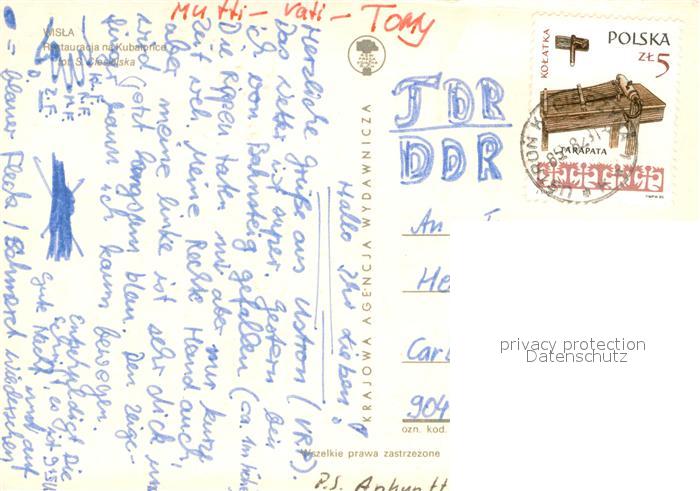 Mutti - Vati - Tomy
WISŁA
Restauracja na Kubalonce
fot. S. Ciesielska
Hallo Ihr Lieben!
Herzliche Grüße aus Ustron (VRP).
Das Wetter ist super. Gestern bin
ich vom Bahnsteig gefallen (ca. 1m hoch)
Die Rippen taten mir aber nur kurz
weh. Meine Rechte Hand auch,
aber meine linke ist sehr dick und
wird jetzt langsam blau. Den Zeige-
finger kann ich kaum bewegen.
Entschuldigt die
Schrift, es ist
Gute Nacht und auf
= blauer Fleck / Wiedersehen
KRAJOWA AGENCJA WYDAWNICZA
JDR
DDR
An
He
Carl
904
ozn. kod.
Wszelkie prawa zastrzeżone
P.S. Ankunft
KOŁATKA
POLSKA
ZŁ 5
TARAPATA
privacy protection
Datenschutz